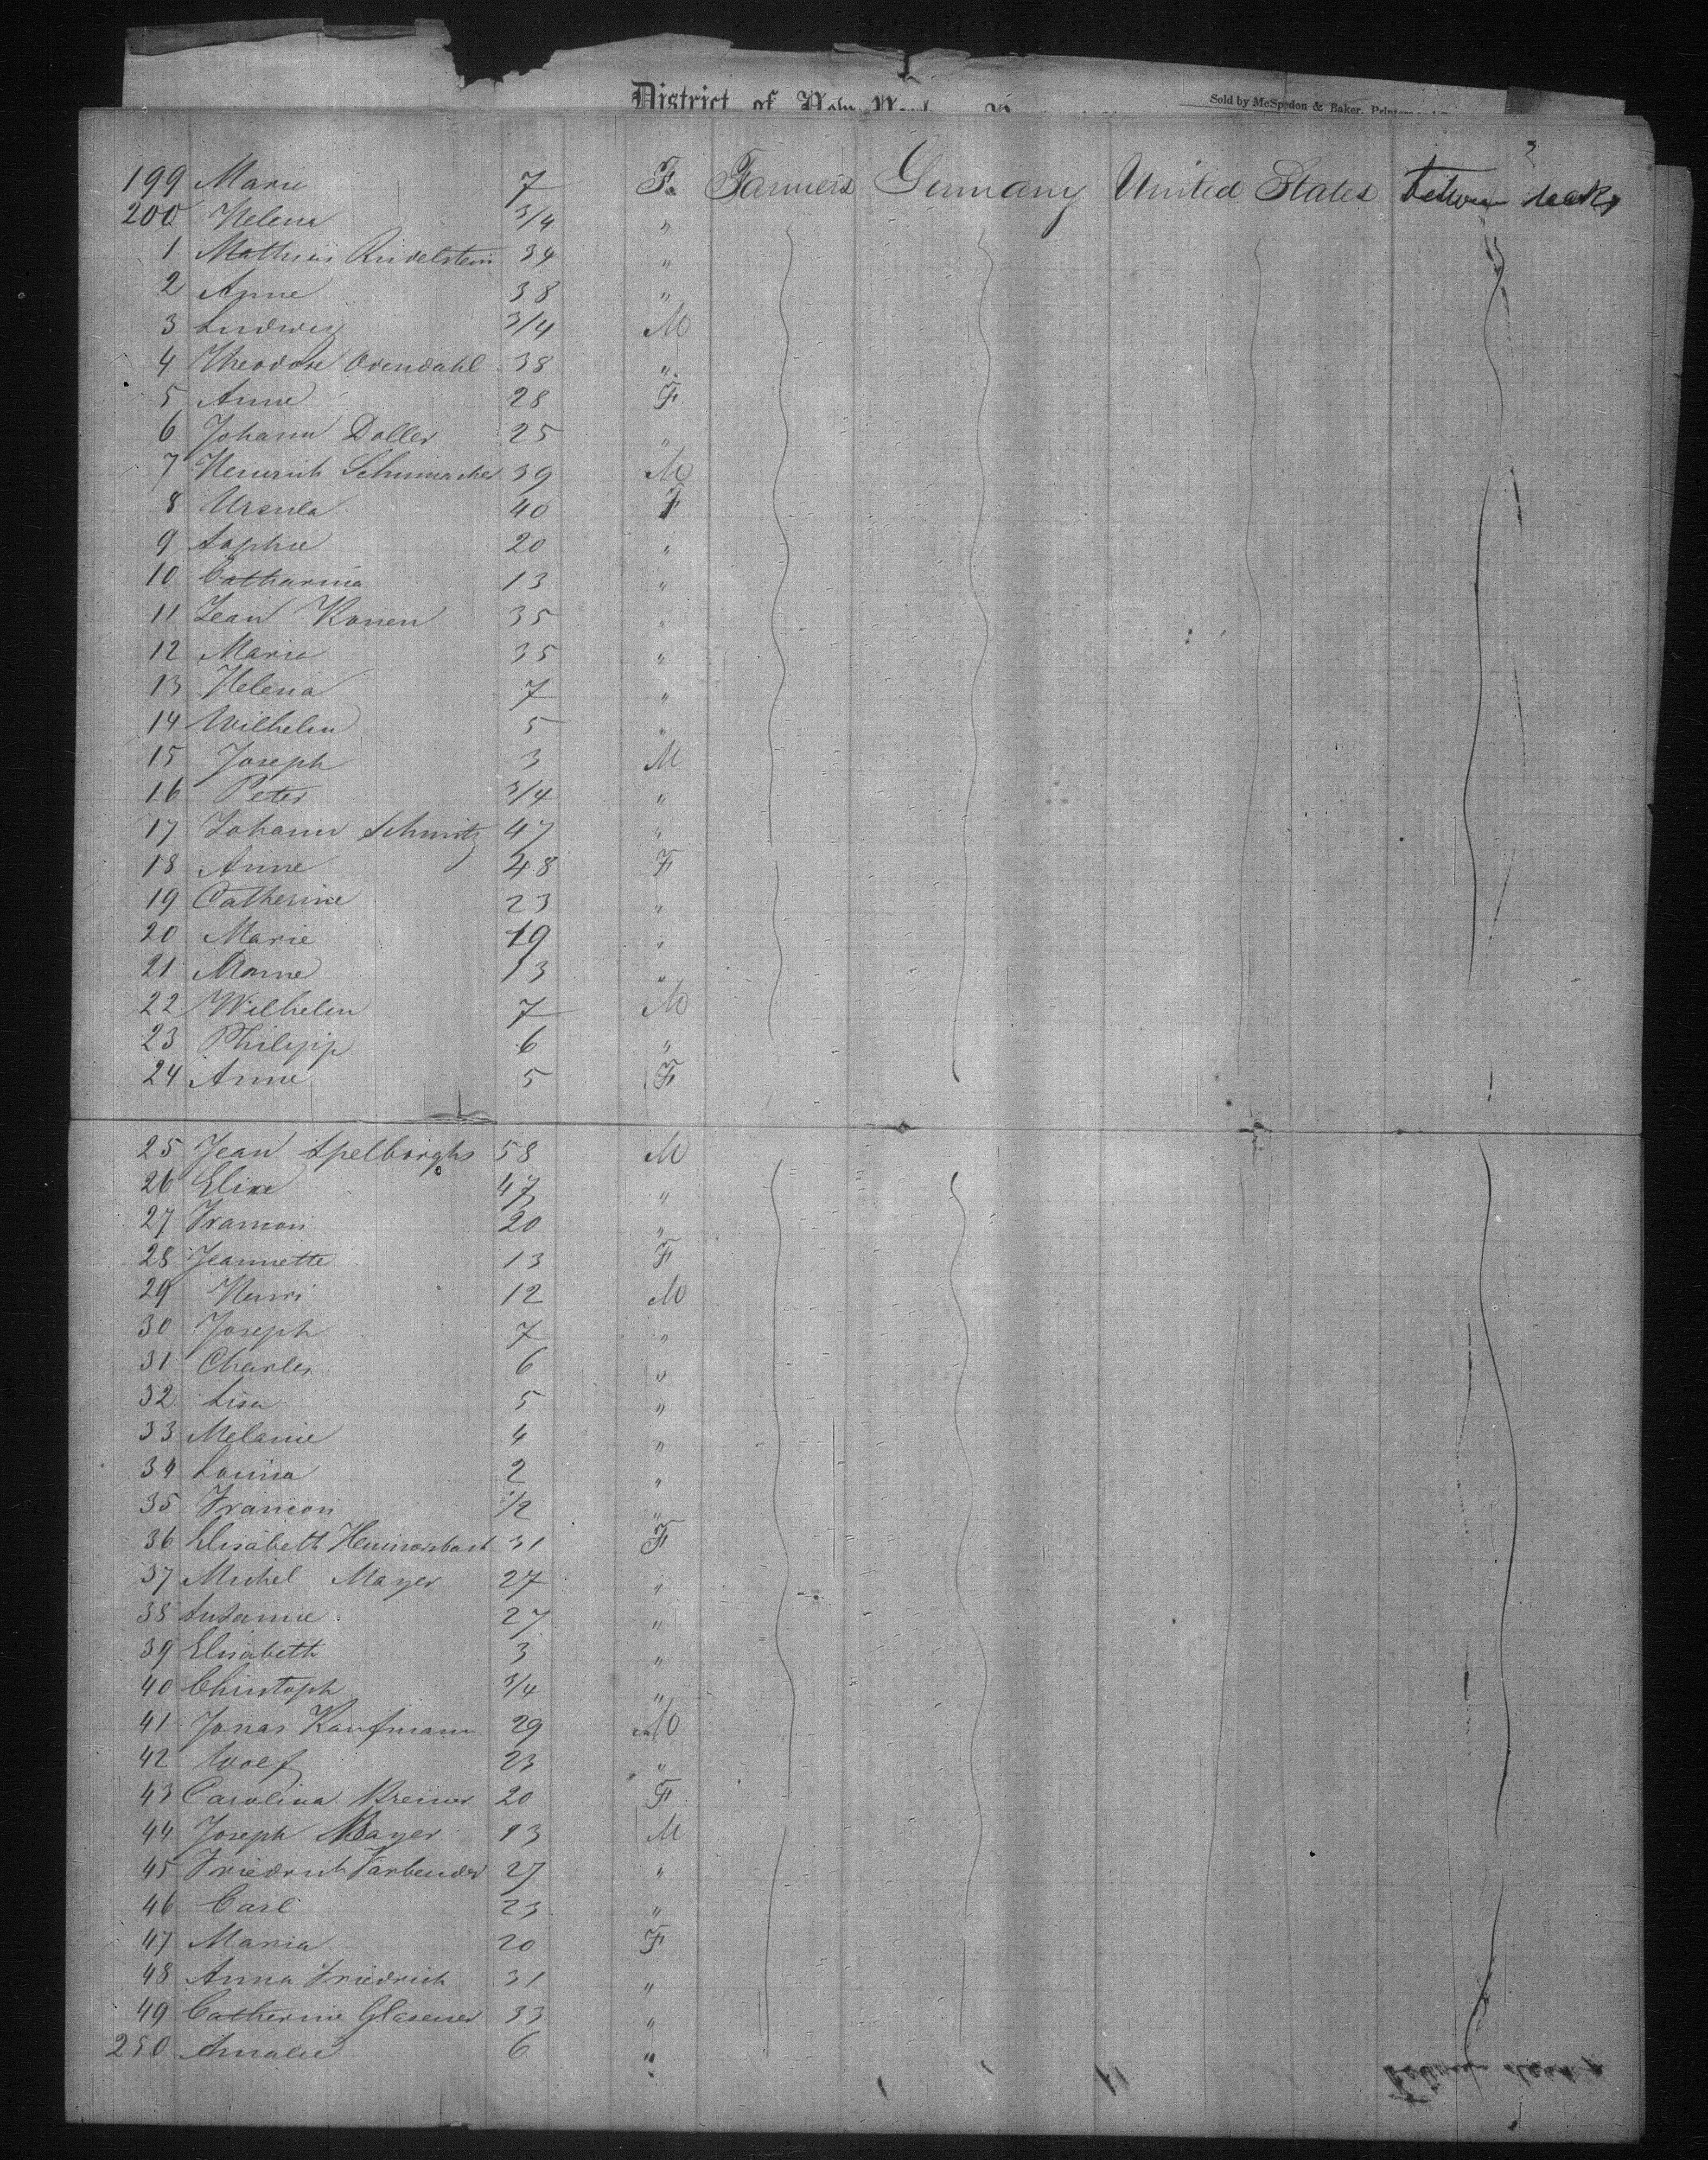 District of New York
Sold by McSpedon & Baker, Printers
199 Marie 7 F. Farmers Germany United States between decks
200 Helena 3/4 "
1 Mathias 34 "
2 Anne 38 "
3 Ludwig 3/4 M
4 Theodore Ovendahl 38 "
5 Anne 28 F
6 Johann Doller 25 "
7 Heinrich Schumacher 39 M
8 Ursula 40 F
9 Sophie 20 "
10 Catharina 13 "
11 Jean Konen 35 "
12 Marie 35 "
13 Helena 7 "
14 Wilhelm 5 "
15 Joseph 3 M
16 Peter 3/4 "
17 Johann Schmitz 47 "
18 Anne 48 F
19 Catherine 23 "
20 Marie 19 "
21 13 "
22 Wilhelm 7 M
23 Philipp 6 "
24 Anne 5 F
25 Jean Spelborghs 58 M
26 Elise 47 "
27 Francois 20 "
28 Jeannette 13 F
29 Henri 12 M
30 Joseph 7 "
31 Charles 6 "
32 Lisa 5 "
33 Melanie 4 "
34 Louisa 2 "
35 Francois 1/2 "
36 Elisabeth 31 F
37 Michel Mayer 27 "
38 Susanne 27 "
39 Elisabeth 3 "
40 Christoph 3/4 "
41 Jonas Kaufmann 29 M
42 Wolf 23 "
43 Carolina 20 F
44 Joseph Mayer 23 M
45 Friedrich Farbender 27 "
46 Carl 23 "
47 Maria 20 F
48 Anna Friedrich 31 "
49 Catherine Glasener 33 "
250 Amalie 6 "